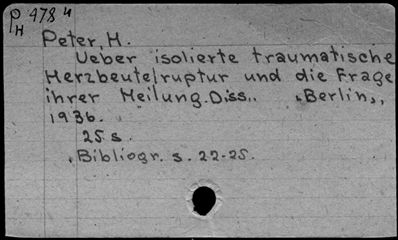 P 478 4
H
Peter, H.
Ueber isolierte traumatische
Herzbeutelruptur und die Frage
ihrer Heilung. Diss.. „Berlin„,
1936.
25 s.
„Bibliogr. s. 22-25.